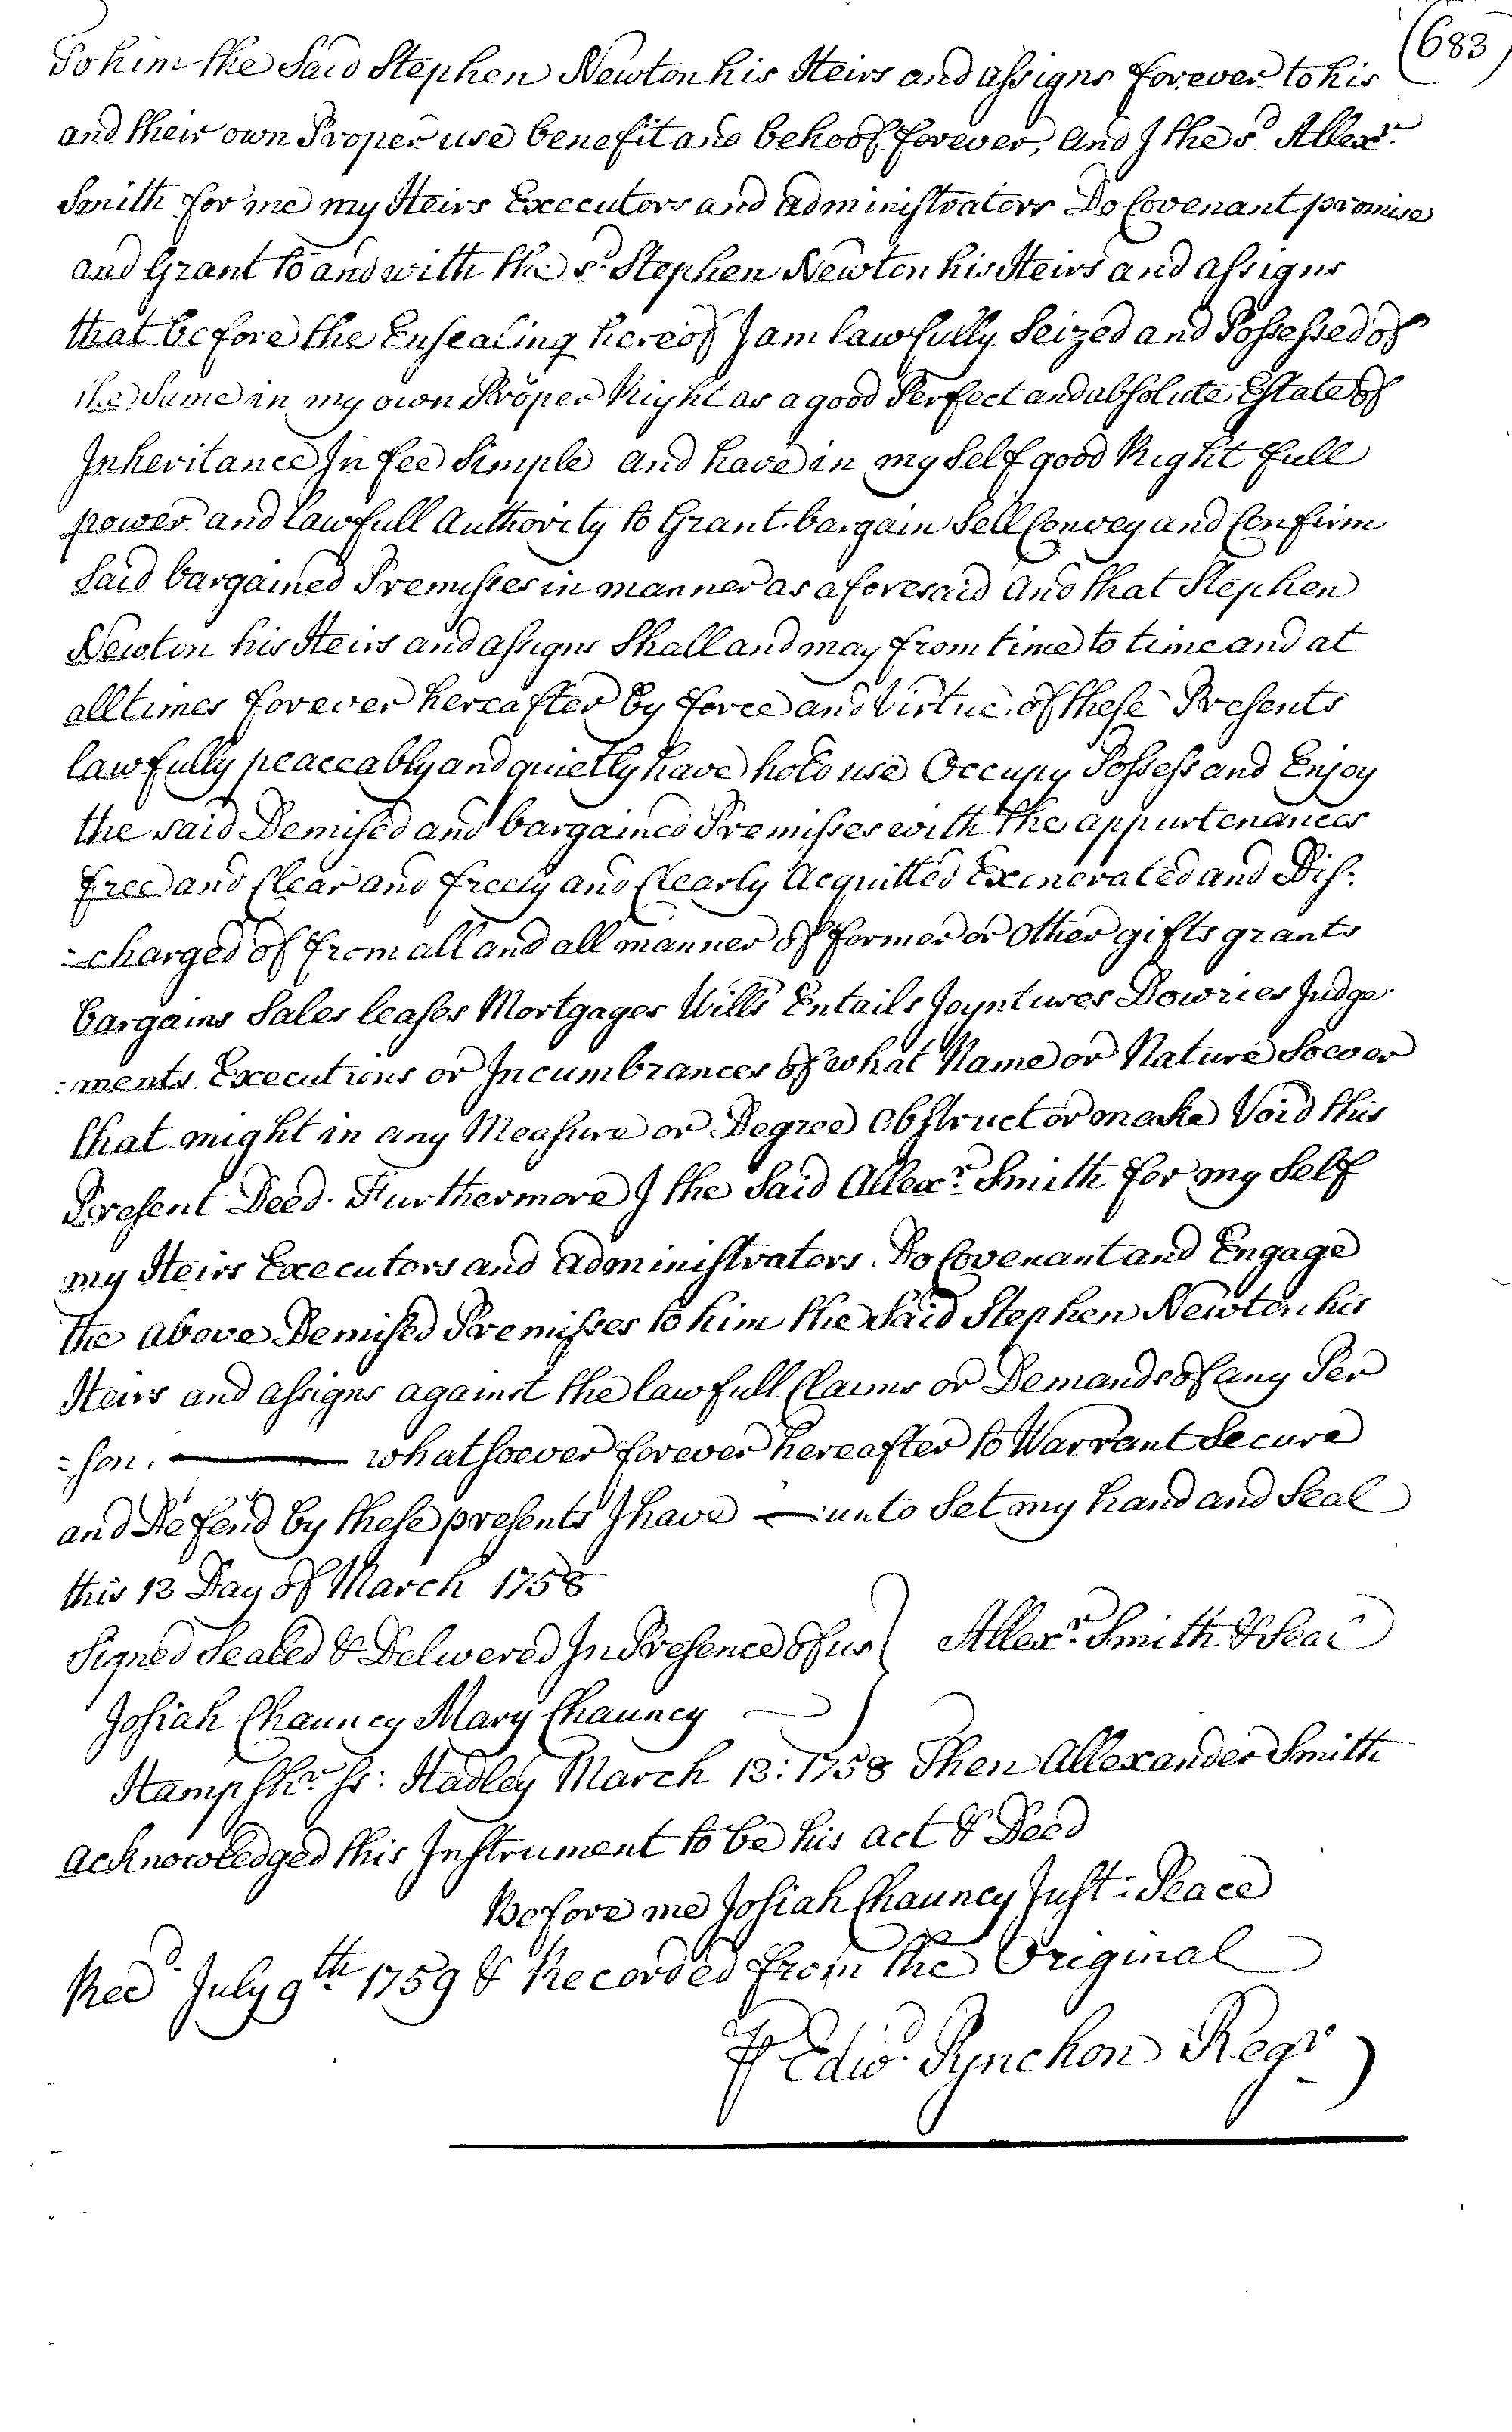 (683)
To him the Said Stephen Newton his Heirs and assigns forever to his
and their own Proper use benefit and behoof forever, And I the sd Allexr.
Smith for me my Heirs Executors and administrators Do Covenant promise
and Grant to and with the sd Stephen Newton his Heirs and assigns
that before the Ensealing hereof I am lawfully Seized and Possessed of
the Same in my own Proper Right as a good Perfect and absolute Estate of
Inheritance In fee Simple and have in my Self good Right full
power and lawfull Authority to Grant bargain Sell Convey and Confirm
Said bargained Premisses in manner as aforesaid And that Stephen
Newton his Heirs and assigns Shall and may from time to time and at
all times forever hereafter by force and Virtue of these Presents
lawfully peaceably and quietly have hold use Occupy Possess and Enjoy
the said Demised and bargained Premisses with the appurtenances
free and Clear and freely and Clearly Acquitted Exinerated and Dis-
=charged of from all and all manner of former or Other gifts grants
bargains Sales leases Mortgages Wills Entails Joyntures Dowries Judge
=ments Executions or Incumbrances of what Name or Nature Soever
that might in any Measure or Degree Obstruct or make Void this
Present Deed. Furthermore I the Said Allexr. Smith for my Self
my Heirs Executors and administrators Do Covenant and Engage
the above Demised Premisses to him the Said Stephen Newton his
Heirs and assigns against the lawfull Claims or Demands of any Per
=son. — whatsoever forever hereafter to Warrant Secure
and Defend by these presents I have — unto Set my hand and Seal
this 13 Day of March 1758
Signed Sealed & Delivered In Presence of us } Allexr. Smith & Seal
Josiah Chauncy Mary Chauncy
Hampshr. ss: Hadley March 13: 1758 Then Allexander Smith
acknowledged this Instrument to be his act & Deed
Before me Josiah Chauncy Just: Peace
Recd. July 9th 1759 & Recorded from the Original
⅌ Edwd. Pynchon Regr